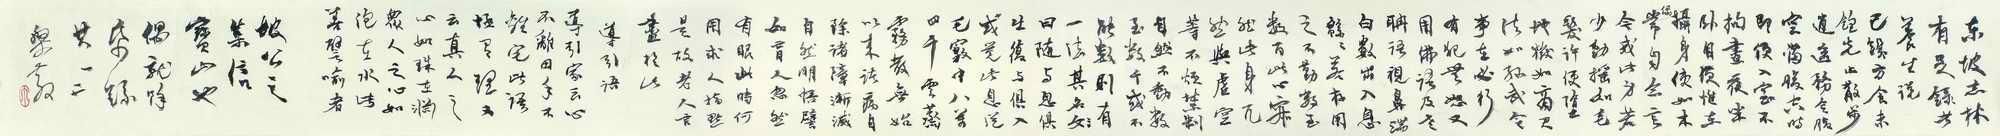 东坡志林
有是録者
養生說
已饑方食未
飽先止散步
逍遥務令腹
空當腹空時
即便入室不
拘晝夜坐
卧自便惟在
攝身使如木
偶常自念言
今我此身若
少動摇如毛
髮許便墮
地獄如商君
法如孫武令
事在必行
有犯無恕又
用佛語及老
聃語視鼻端
白數出入息
綿綿若存用
之不勤數至
數百此心寂
然此身兀
然與虛空
等不煩禁制
自然不動數
至數千或不
能數則有
一法其名
曰随与息俱
出復与俱入
或覺此息從
毛竅中八萬
四千雲蒸
霧散無始
以来諸病自
除諸障漸滅
自然明悟譬
如盲人忽然
有眼此時何
用求人指路
是故老人言
盡於此
導引語
導引家云心
不離田手不
離宅此語
極有理又
云真人之
心如珠在淵
衆人之心如
泡在水此
善譬喻者
坡公之
信
寶山也
偶
其一二